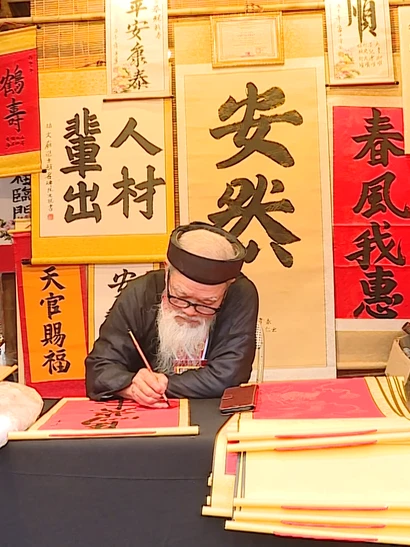 鶴壽
平安康泰
順
人材
輩出
安然
春風我惠
臨門
天官賜福
安